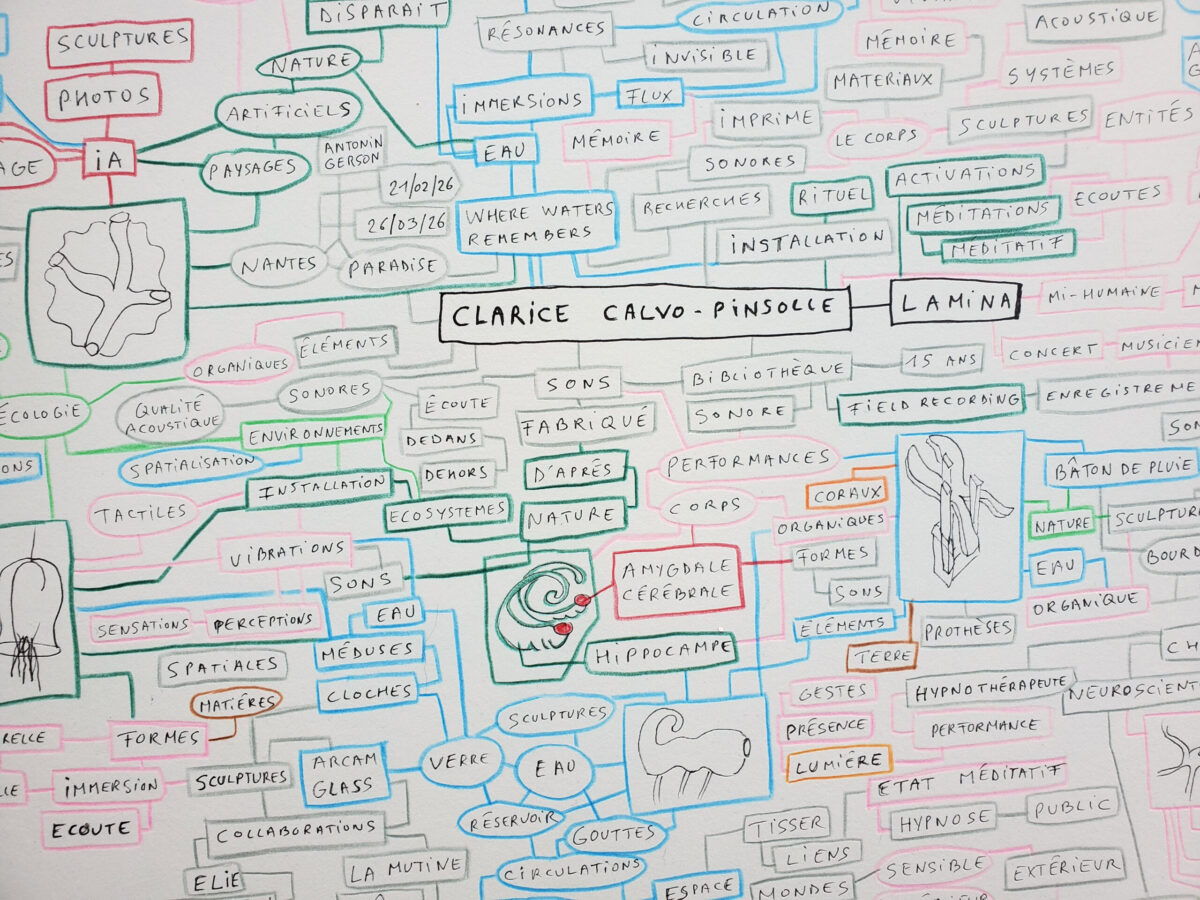 DISPARAIT
CIRCULATION
SCULPTURES
RÉSONANCES
ACOUSTIQUE
NATURE
INVISIBLE
MÉMOIRE
SYSTÈMES
PHOTOS
ARTIFICIELS
IMMERSIONS
FLUX
MATERIAUX
IMPRIME
LE CORPS
SCULPTURES
ENTITÉS
IA
PAYSAGES
ANTONIN
GERSON
EAU
MÉMOIRE
SONORES
21/02/26
ACTIVATIONS
RITUEL
ECOUTES
26/03/26
WHERE WATERS
REMEMBERS
RECHERCHES
MÉDITATIONS
MEDITATIF
INSTALLATION
NANTES
PARADISE
CLARICE CALVO-PINSOLLE
LAMINA
MI-HUMAINE
ÉLÉMENTS
ORGANIQUES
CONCERT
SONS
BIBLIOTHÈQUE
15 ANS
ÉCOLOGIE
QUALITÉ
ACOUSTIQUE
SONORES
ÉCOUTE
FABRIQUÉ
SONORE
FIELD RECORDING
ENVIRONNEMENTS
DEDANS
SPATIALISATION
DEHORS
D'APRÈS
PERFORMANCES
BÂTON DE PLUIE
INSTALLATION
CORAUX
TACTILES
ECOSYSTEMES
NATURE
CORPS
ORGANIQUES
NATURE
VIBRATIONS
SONS
AMYGDALE
CÉRÉBRALE
FORMES
EAU
SONS
SENSATIONS
PERCEPTIONS
EAU
ORGANIQUE
ÉLÉMENTS
PROTHÈSES
SPATIALES
MÉDUSES
HIPPOCAMPE
TERRE
MATIÉRES
CLOCHES
GESTES
HYPNOTHÉRAPEUTE
SCULPTURES
PRÉSENCE
PERFORMANCE
FORMES
ARCAM
GLASS
VERRE
EAU
LUMIÈRE
ETAT MÉDITATIF
IMMERSION
SCULPTURES
RÉSERVOIR
GOUTTES
TISSER
HYPNOSE
PUBLIC
ECOUTE
COLLABORATIONS
LIENS
ELIE
LA MUTINE
CIRCULATIONS
ESPACE
MONDES
SENSIBLE
EXTÉRIEUR